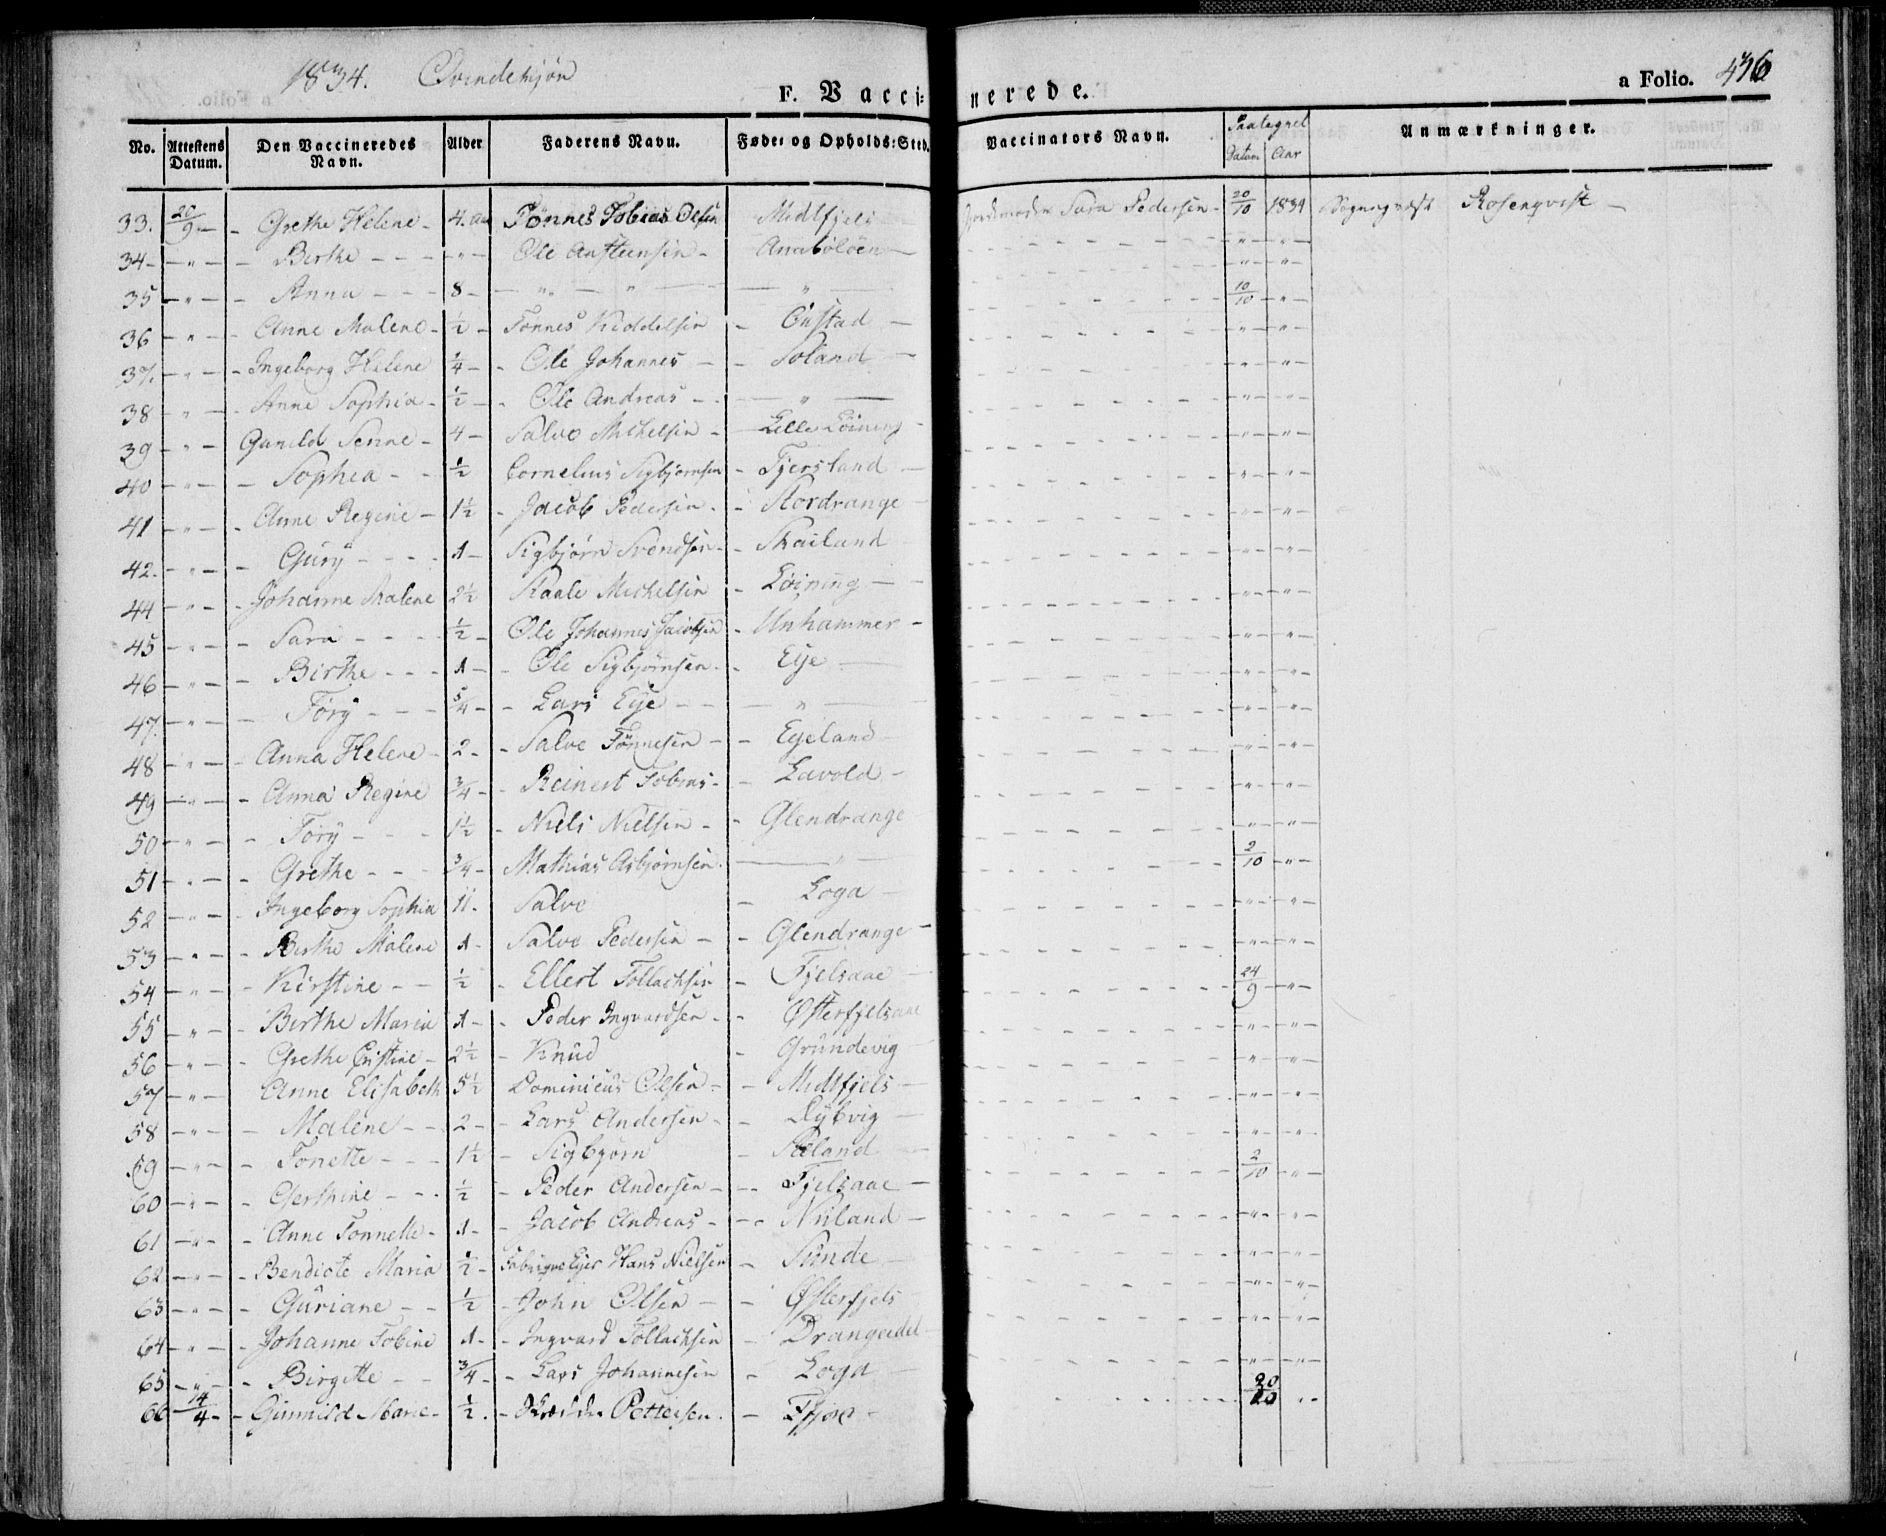 1834. Qvindekjøn
F. Vaccinerede.
a Folio. 436
No. | Attestens Datum. | Den Vaccineredes Navn. | Alder | Faderens Navn. | Føde- og Opholds-Sted. | Vaccinators Navn. | Paategnet Datum | Aar | Anmærkninger.
33. 20/9 - Grethe Helene - 4. Aar Tönnes Tobias Olsen Midtfjels Jordemoder Sara Pedersen - 20/10 1834 Rosenqvist -
34 - " - Birthe - " - Ole - " - " -
35 - " - Anna - 8 - " - " - " - 10/10 - " -
36 - " - Anne Malene - 1/2 - Tönnes Kiddelsen - Östad - " - " -
37. - " - Ingeborg Helene 1/4 - Ole Johannes - Soland - " - " -
38 - " - Anne Sophia - 1/2 - Ole Andreas - " - " - " -
39 - " - Gunild Tenne - 4 - Salve Michelsen - Lille Löining - " - " -
40 - " - Sophia - 1/2 Cornelius Sigbjørnsen - Fjersland - " - " -
41 - " - Anne Regine - 1 1/2 - Jacob Pedersen - Stordrange - " - " -
42. - " - Gury - 1 - Sigbjørn Svendsen - Skailand - " - " -
44 - " - Johanne Malene 2 1/2 Staale Michelsen - Löining - " - " -
45 - " - Sara - 1/2 - Ole Johannes Jacobsen - Unhammer - " - " -
46 - " - Birthe - 1 - Ole Sigbjørnsen - Eije - " - " -
47. - " - Töry - 5/4 - Lars Eije - " - " - " -
48 - " - Anna Helene - 2 - Salve Tönnesen - Egeland - " - " -
49 - " - Anna Regine 3/4 - Reinert Tobias - Lavold - " - " -
50 - " - Töry - 1 1/2 - Niels Nielsen - Glendrange - " - " -
51 - " - Grethe - 3/4 - Mathias Asbjørnsen - " - 2/10 - " -
52 - " - Ingeborg Sophia 11 - Salve - Loga - " - " -
53 - " - Birthe Malene 1 - Salve Pedersen - Glendrange - " - " -
54 - " - Kirstine - 1/2 - Ellert Tollachsen - Fjelsaae - 24/9 - " -
55 - " - Birthe Maria 1 - Peder Ingvardsen - Østerfjelsaae - " - " -
56 - " - Grethe Cristine - 2 1/2 - Knud - Grundevig - " - " -
57 - " - Anne Elisabeth 5 1/2 Dominicus Olsen - Midtfjels - " - " -
58 - " - Malene - 2 - Lars Andersen - Dybvig - " - " -
59 - " - Tonette - 1 1/2 - Sigbjørn - Sæland - 2/10 - " -
60 - " - Gerthine - 1/2 - Peder Andersen - Fjelsaae - " - " -
61 - " - Anne Tonnette - 1 - Jacob Andreas - Nuland - " - " -
62 - " - Bendicte Maria 1/2 - Fabriqve Ejer Hans Nielsen - Sunde - " - " -
63 - " - Guriane - 1/2 - John Olsen - Østerfjels - " - " -
64 - " - Johanne Tobine 1 - Ingvard Tollachsen - Drangeidet - " - " -
65 - " - Birgitte - 3/4 - Lars Johannesen - Loga - " - " -
66 14/4 - Gunnild Marie - 1/2. Pettersen. - 20/10 "